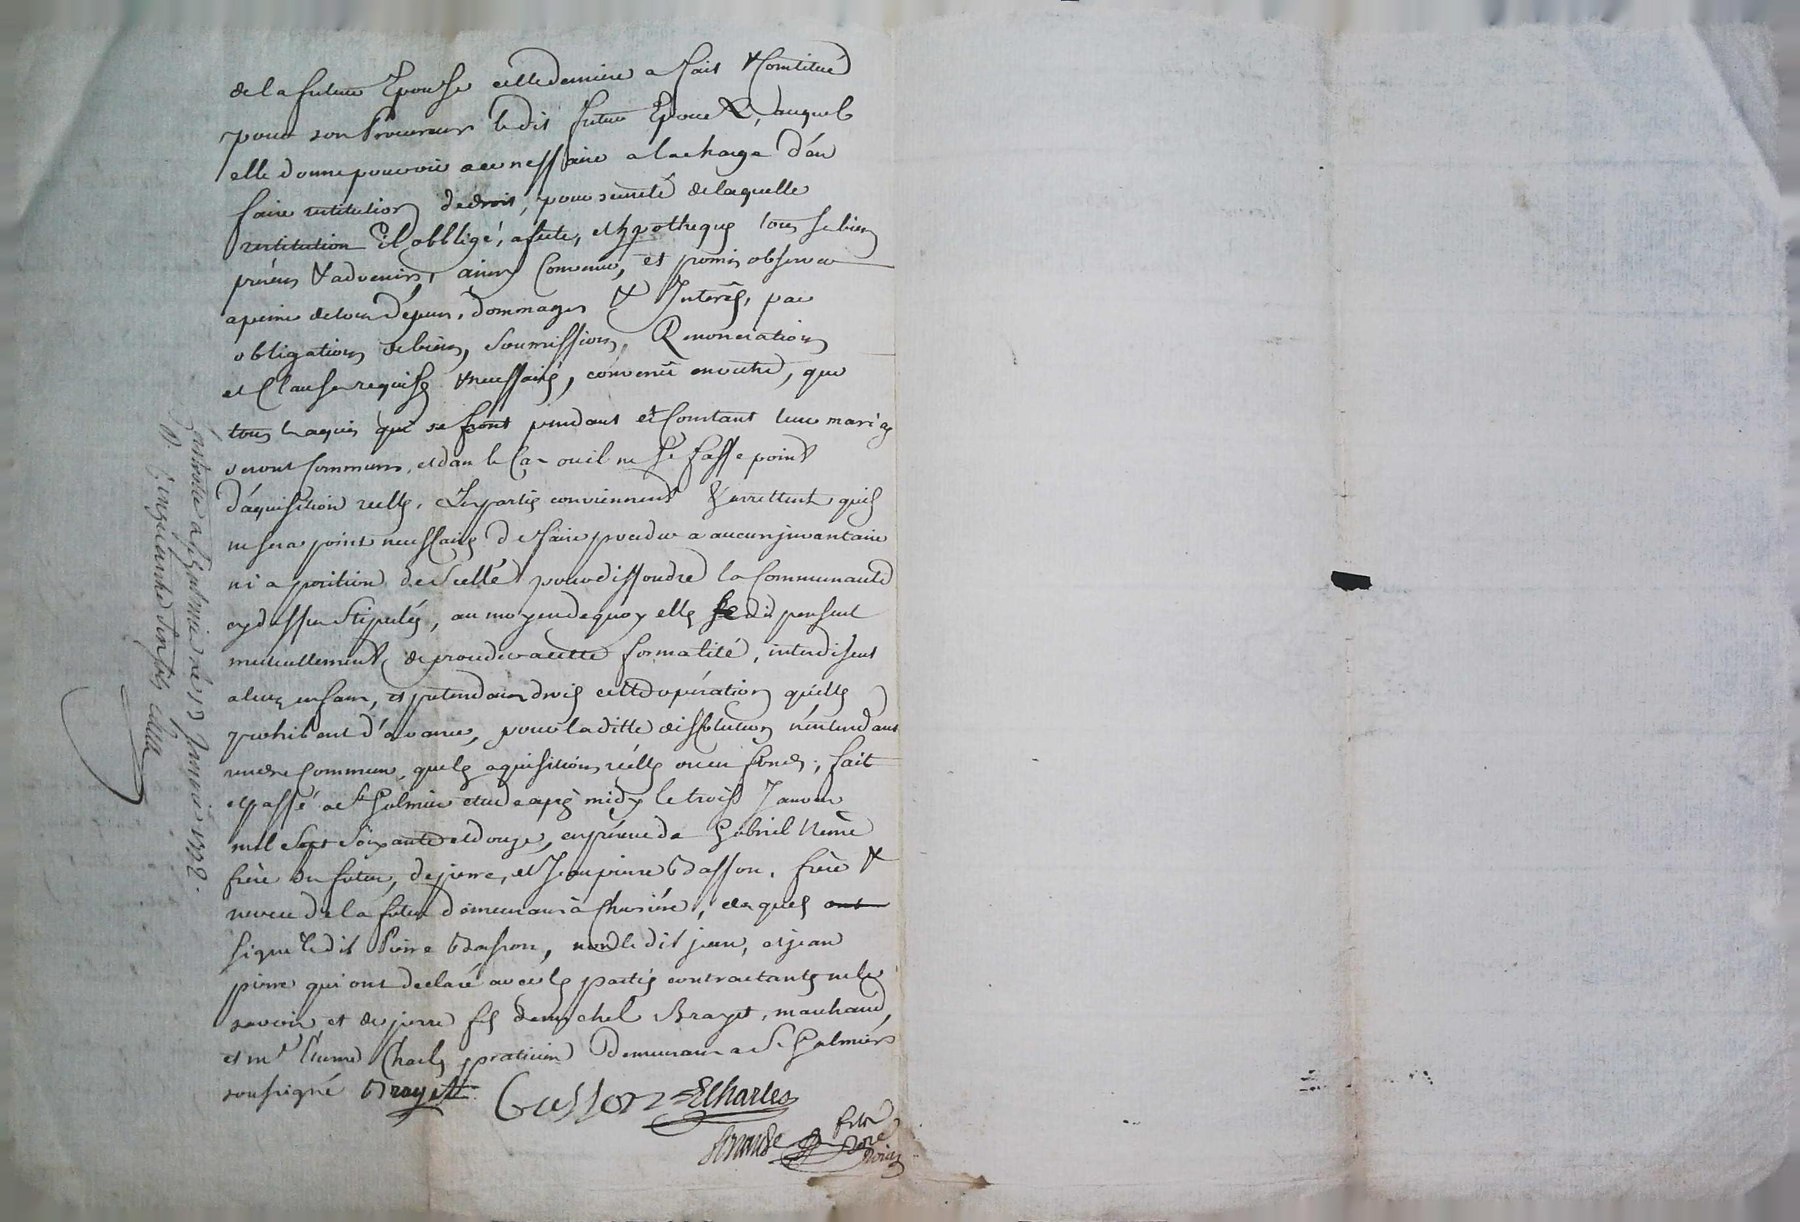 de la future Epouse cette derniere a fait & Constitué
pour son Procureur le dit futur Epoux, auquel
elle donne pouvoir a ce nessaire a la charge d'en
faire restitution de droit, pour sureté de laquelle
restitution il obbligé, afecte, et hypotheque tous se biens
présens & advenirs, ainsy Convenu, et promis observer
a peine de tous dépens, dommages & Interêts, par
obligations de biens, Soumissions, Renonciations
et Clauses requises & nessaires, convenu en outre, que
tous les aquis qui se front pendant et Constant leur mariage
seront Communs, et dans le Cas ou il ne se fasse point
d'aquisition reelle, les parties conviennent & arrettent quil
ne sera point nessaire de faire proceder a aucun inventaire
ni aposition de scellé pour dissoudre la Communauté
cy dessus Stipulée, au moyen de quoy elles se dispensent
mutuellement de proceder a cette formalité, interdisent
a leurs enfans, et pretendans droits cette operation quelles
prohibent d'avance, pour la ditte dissolution n'entendant
rendre Commun, que les aquisitions réelles ou en fonds; fait
et passé a St Galmier etude apres midy le trois Janvier
mil Sept Soixante et douze, en présence de Gabriel
frère du futur, de pierre, et Jean pierre Basson, frère &
neveu de la future demeurans à, lesquels ont
signé le dit Pierre Basson, non le dit jean, et jean
pierre qui ont declaré avec les parties contractantes ne le
savoir, et de pierre fils de michel Brayet, marchand,
et mr Etienne Charles praticien demeurans a St Galmier
soussigné Brayet Basson E Charles